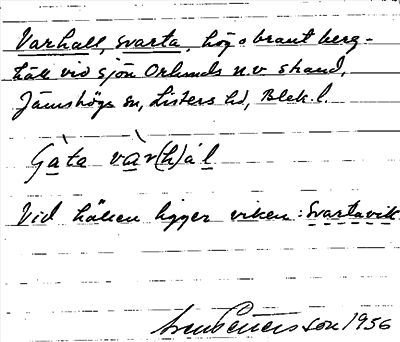 Varhall, svarta, hög o brant berg-
häll vid sjön Orlunds n.v. strand,
Jämshögs sn, Listers hd, Blek. l.
Gàta vàr(h)ál
Vid hällen ligger viken: Svartavik
Sven Petersson 1956